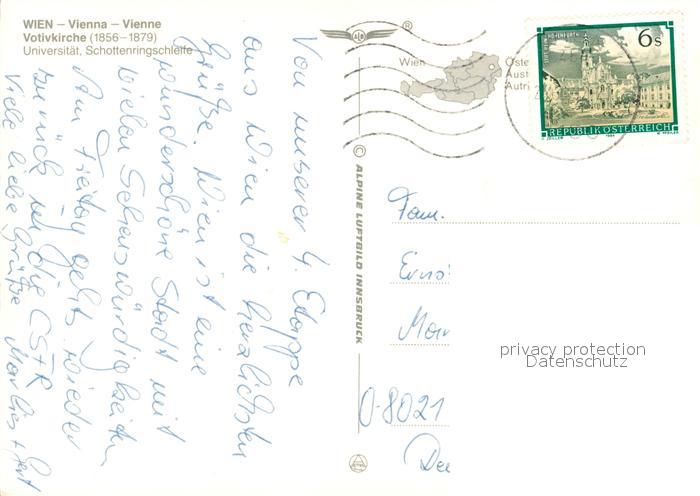 WIEN – Vienna – Vienne
Votivkirche (1856–1879)
Universität, Schottenringschleife
Von unserer 4. Etappe
aus Wien die herzlichsten
Grüße. Wien ist eine
wunderschöne Stadt mit
vielen Sehenswürdigkeiten
Am Freitag gehts wieder
zurück in die CSFR
Viele liebe Grüße Marlies + Gert
© ALPINE LUFTBILD INNSBRUCK
®
Wien
Öste
Aust
Autri
6s
REPUBLIK ÖSTERREICH
Fam.
O-8021
privacy protection
Datenschutz